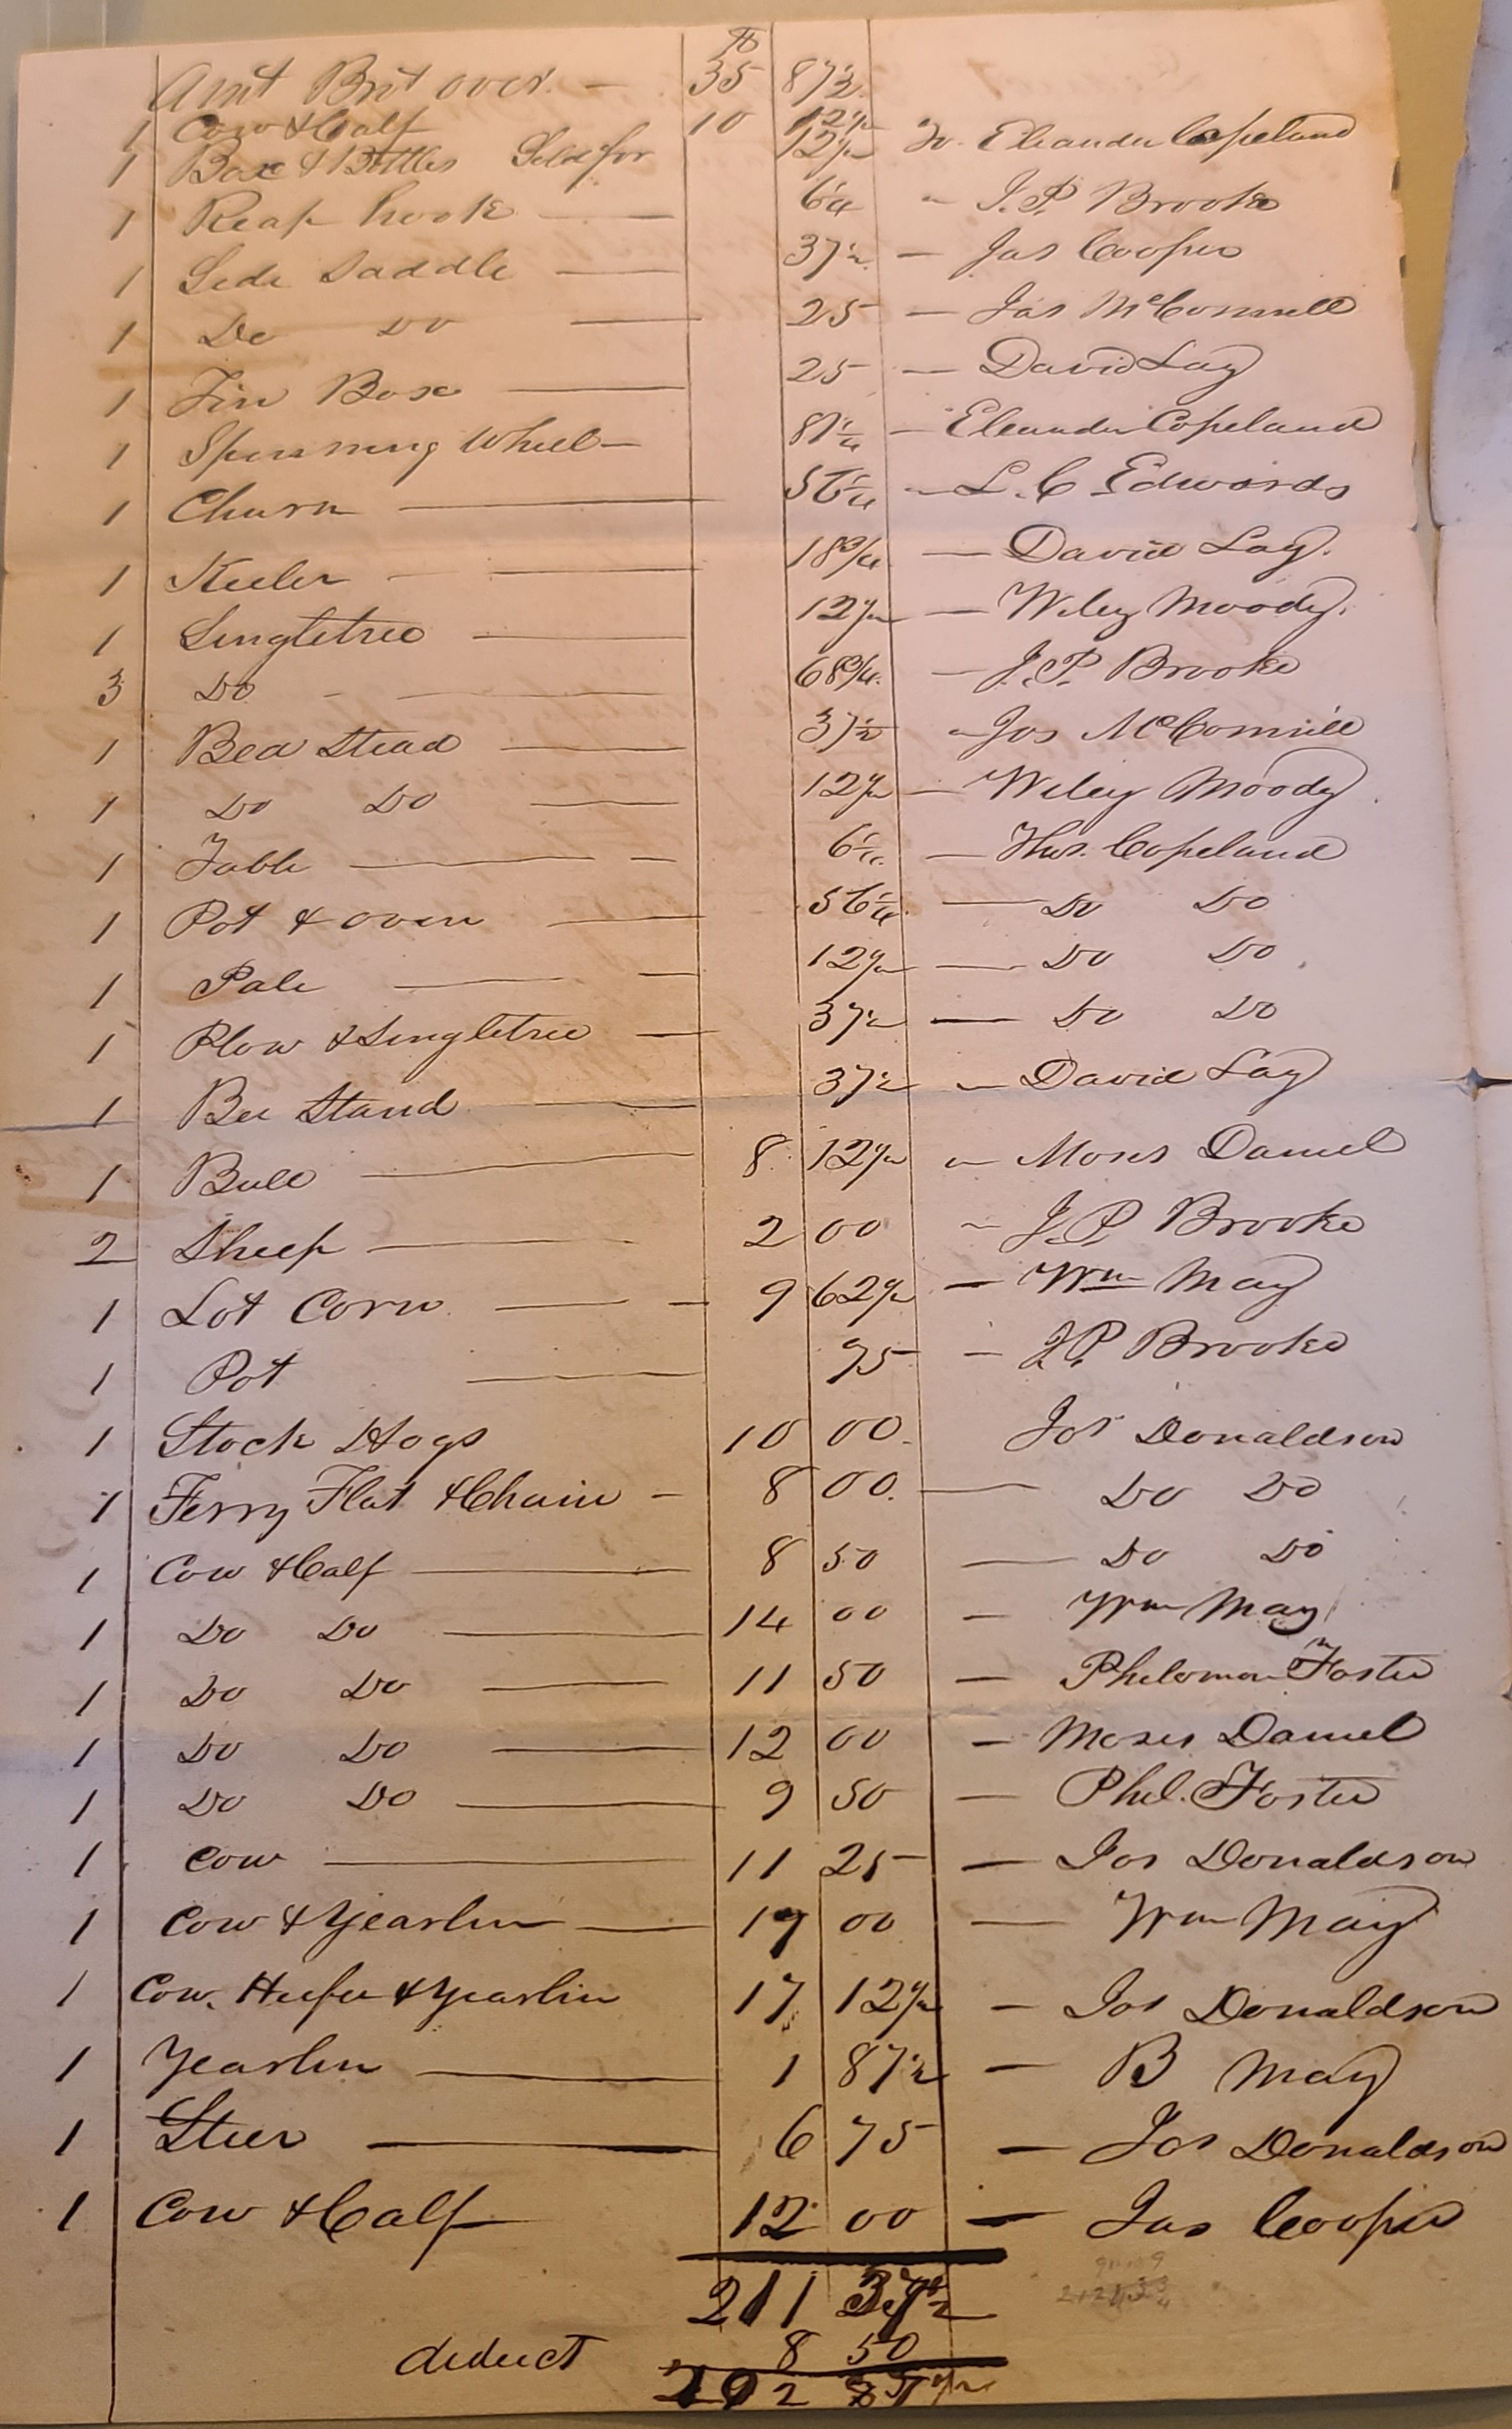 $
Amt Brt over. — 35 87½
1 Cow & Calf 10 12½
1 Box & Bottles Sold for 12½ To. Eleander Copeland
1 Reap hook — 6¼ " J. P. Brooke
1 Side Saddle — 37½ — Jas Cooper
1 Do Do — 25 — Jas McConnell
1 Tin Box — 25 — David Lay
1 Spinning Wheel — 81¼ — Eleander Copeland
1 Churn — 56¼ — L. C Edwards
1 Keeler — 18¾ — David Lay.
1 Singletree — 12½ — Wiley Moody.
3 Do - — 68¾ — J. P. Brooke
1 Bed Stead — 37½ " Jos McConnell
1 Do Do — 12½ — Wiley Moody
1 Table — — 6¼ — Thos. Copeland
1 Pot & oven — 56¼ — Do Do
1 Pale — — 12½ — Do Do
1 Plow & Singletree — 37½ — Do Do
1 Bee Stand — 37½ — David Lay
1 Bull — 8 12½ — Moses Daniel
2 Sheep — 2 00 " J. P. Brooke
1 Lot Corn — — 9 62½ — Wm May
1 Pot — 75 — J P. Brooke
1 Stock Hogs 10 00 Jos Donaldson
1 Ferry Flat & Chain — 8 00. — Do Do
1 Cow & Calf — 8 50 — Do Do
1 Do Do — 14 00 — Wm May
1 Do Do — 11 50 — Philomon Foster
1 Do Do — 12 00 — Moses Daniel
1 Do Do — 9 50 — Phil. Foster
1 Cow — 11 25 — Jos Donaldson
1 Cow & Yearlin — 17 00 — Wm May
1 Cow. Heifer & yearlin 17 12½ — Jos Donaldson
1 Yearlin — 1 87½ — B May
1 Steer — 6 75 — Jos Donaldson
1 Cow & Calf 12 00 — Jas Cooper
211 37½
deduct 8 50
202 87½